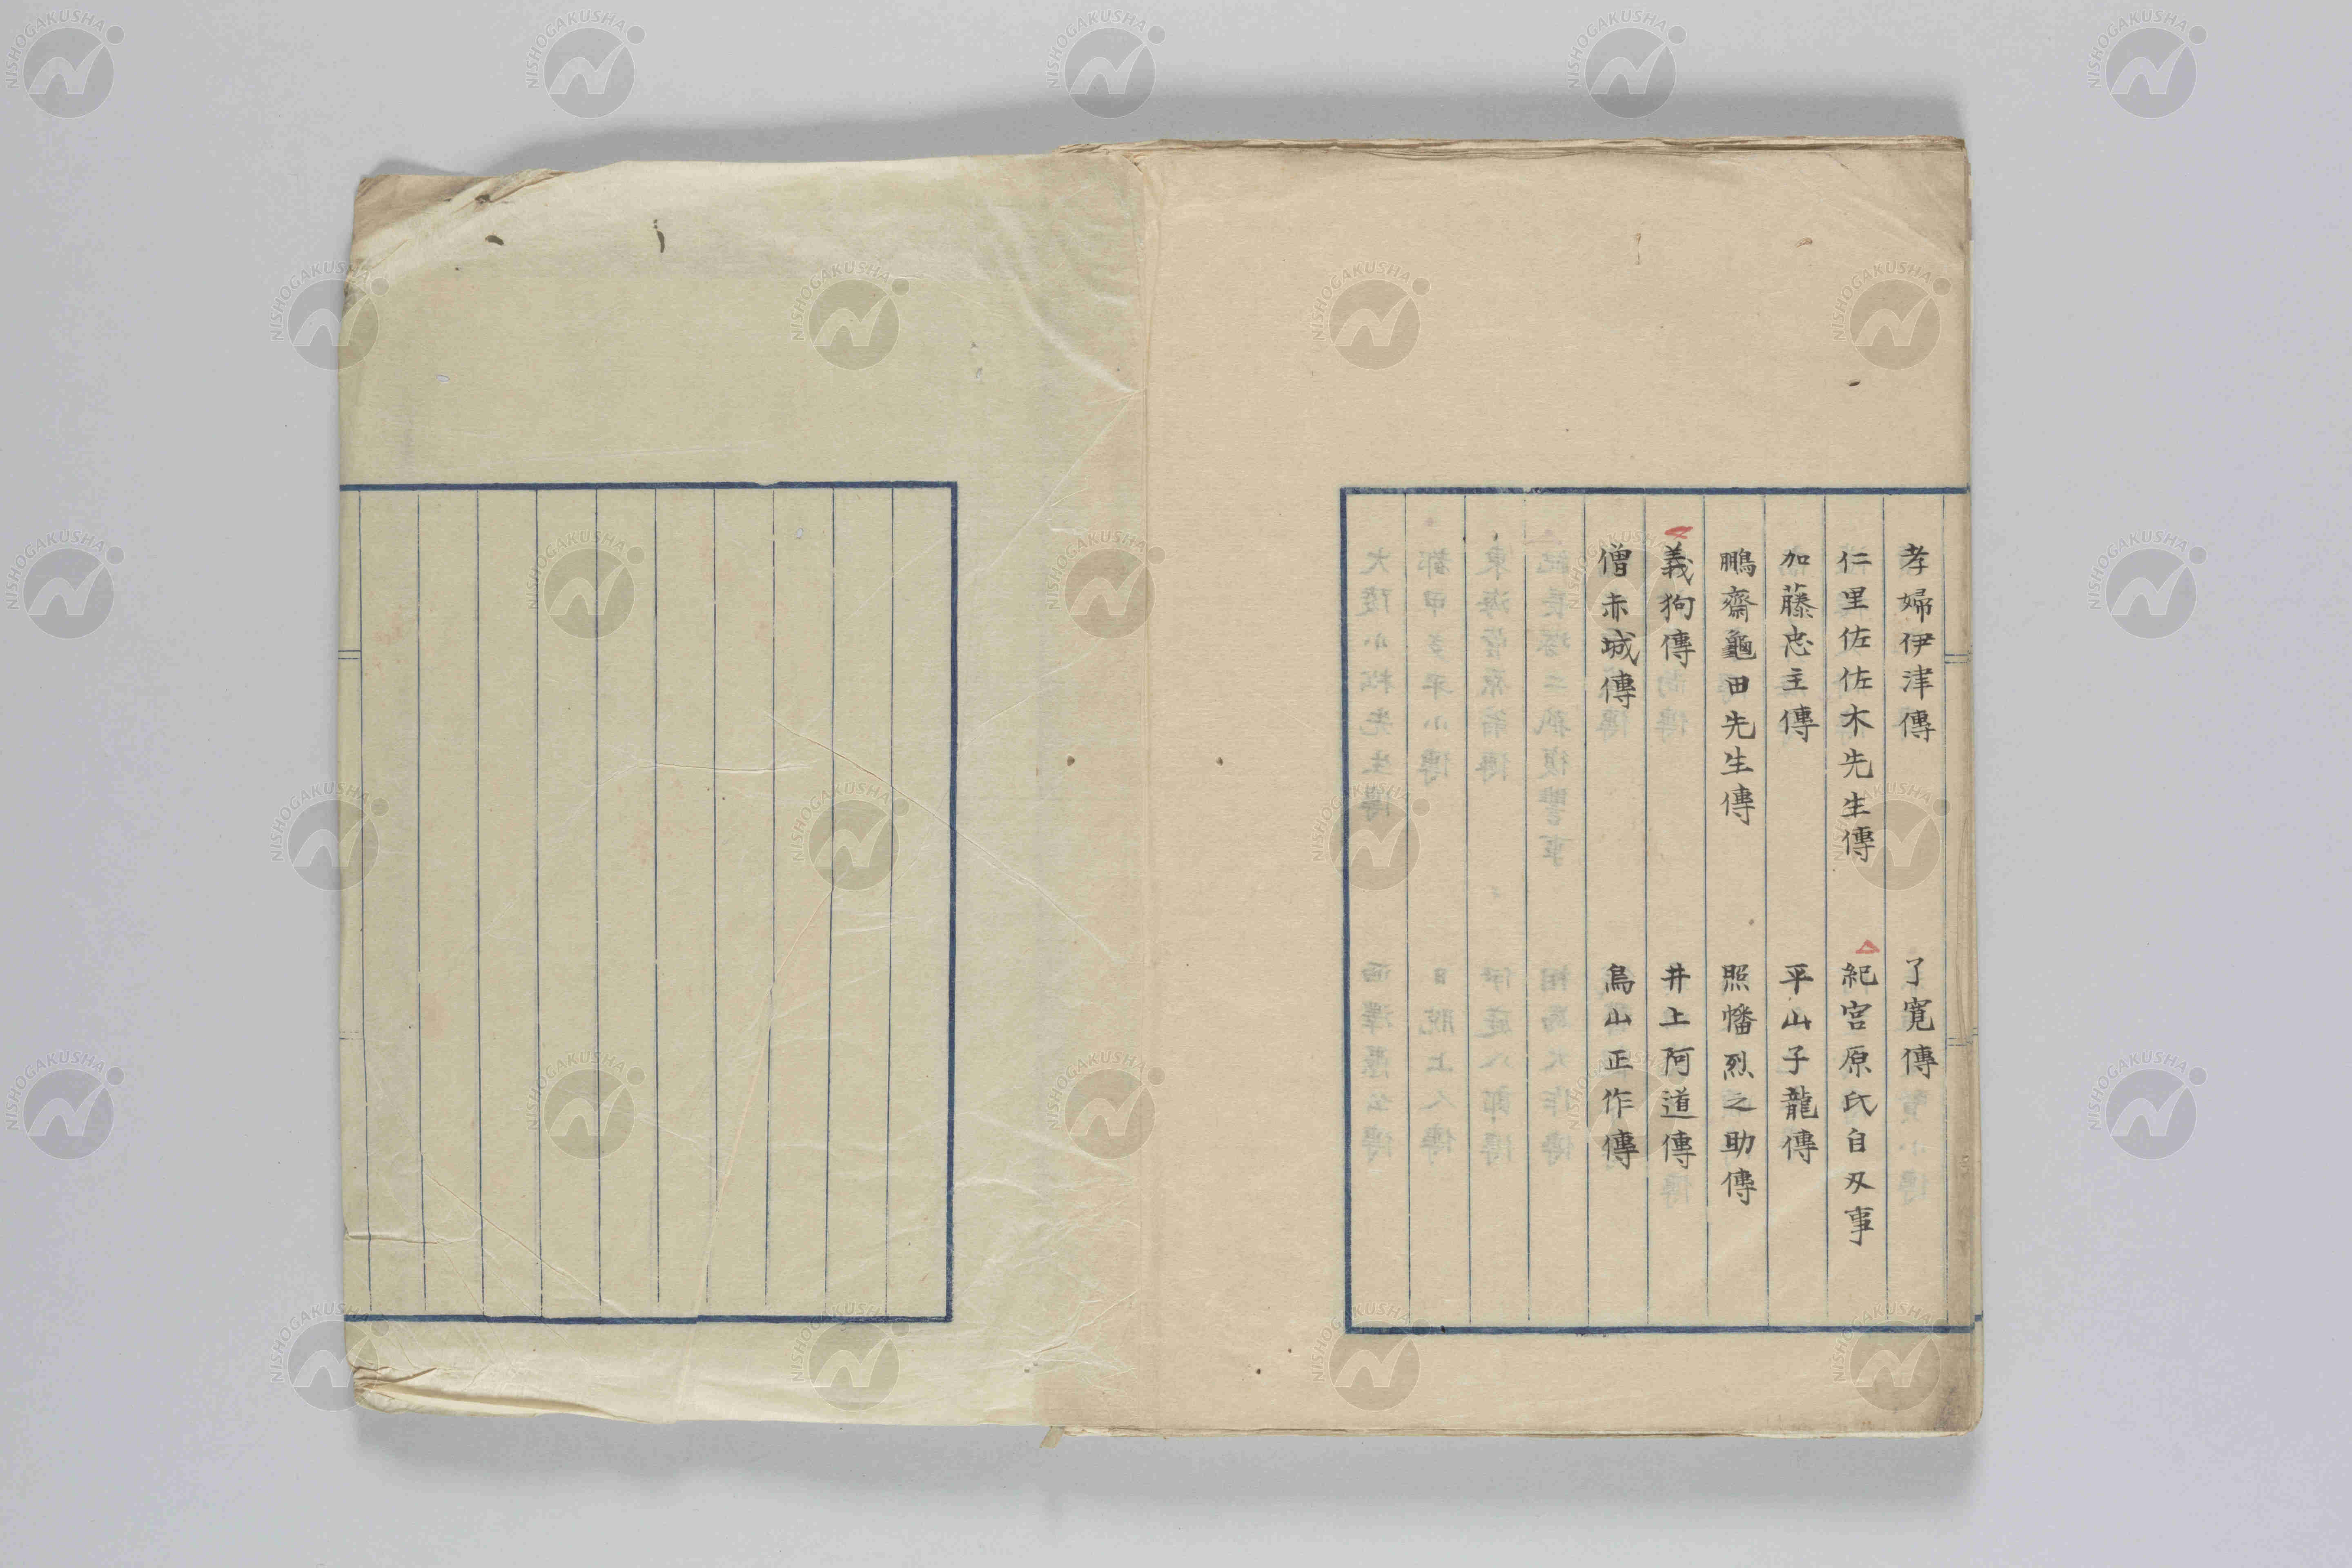 孝婦伊津傳　了寛傳
仁里佐佐木先生傳　紀宮原氏自刄事
加藤忠主傳　平山子龍傳
鵬齋龜田先生傳　照幡烈之助傳
義狗傳　井上阿道傳
僧赤城傳　烏山正作傳
NISHOGAKUSHA